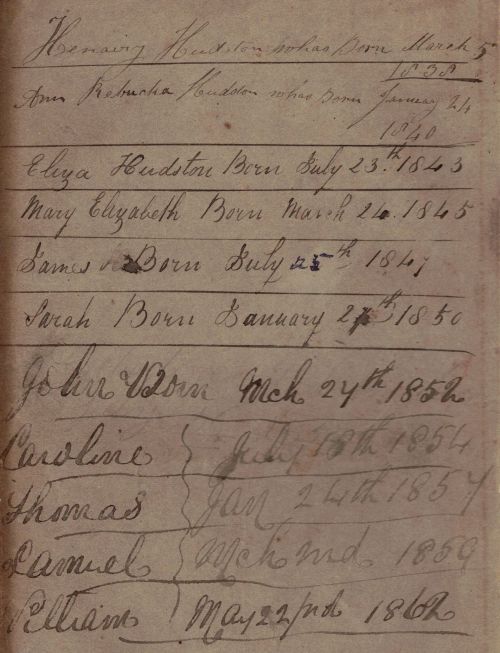 Henairy Hudston whas Born March 5
1838
Ann Rebucha Hudston whas Born January 24
1840
Eliza Hudston Born July 23.th 1843
Mary Elizabeth Born March 24. 1845
James Born July 25th 1847
Sarah Born January 27th 1850
John Born Mch 24th 1852
Caroline } July 18th 1854
Thomas } Jan 24th 1857
Samuel } Mch 1859
William } May 22nd 1862